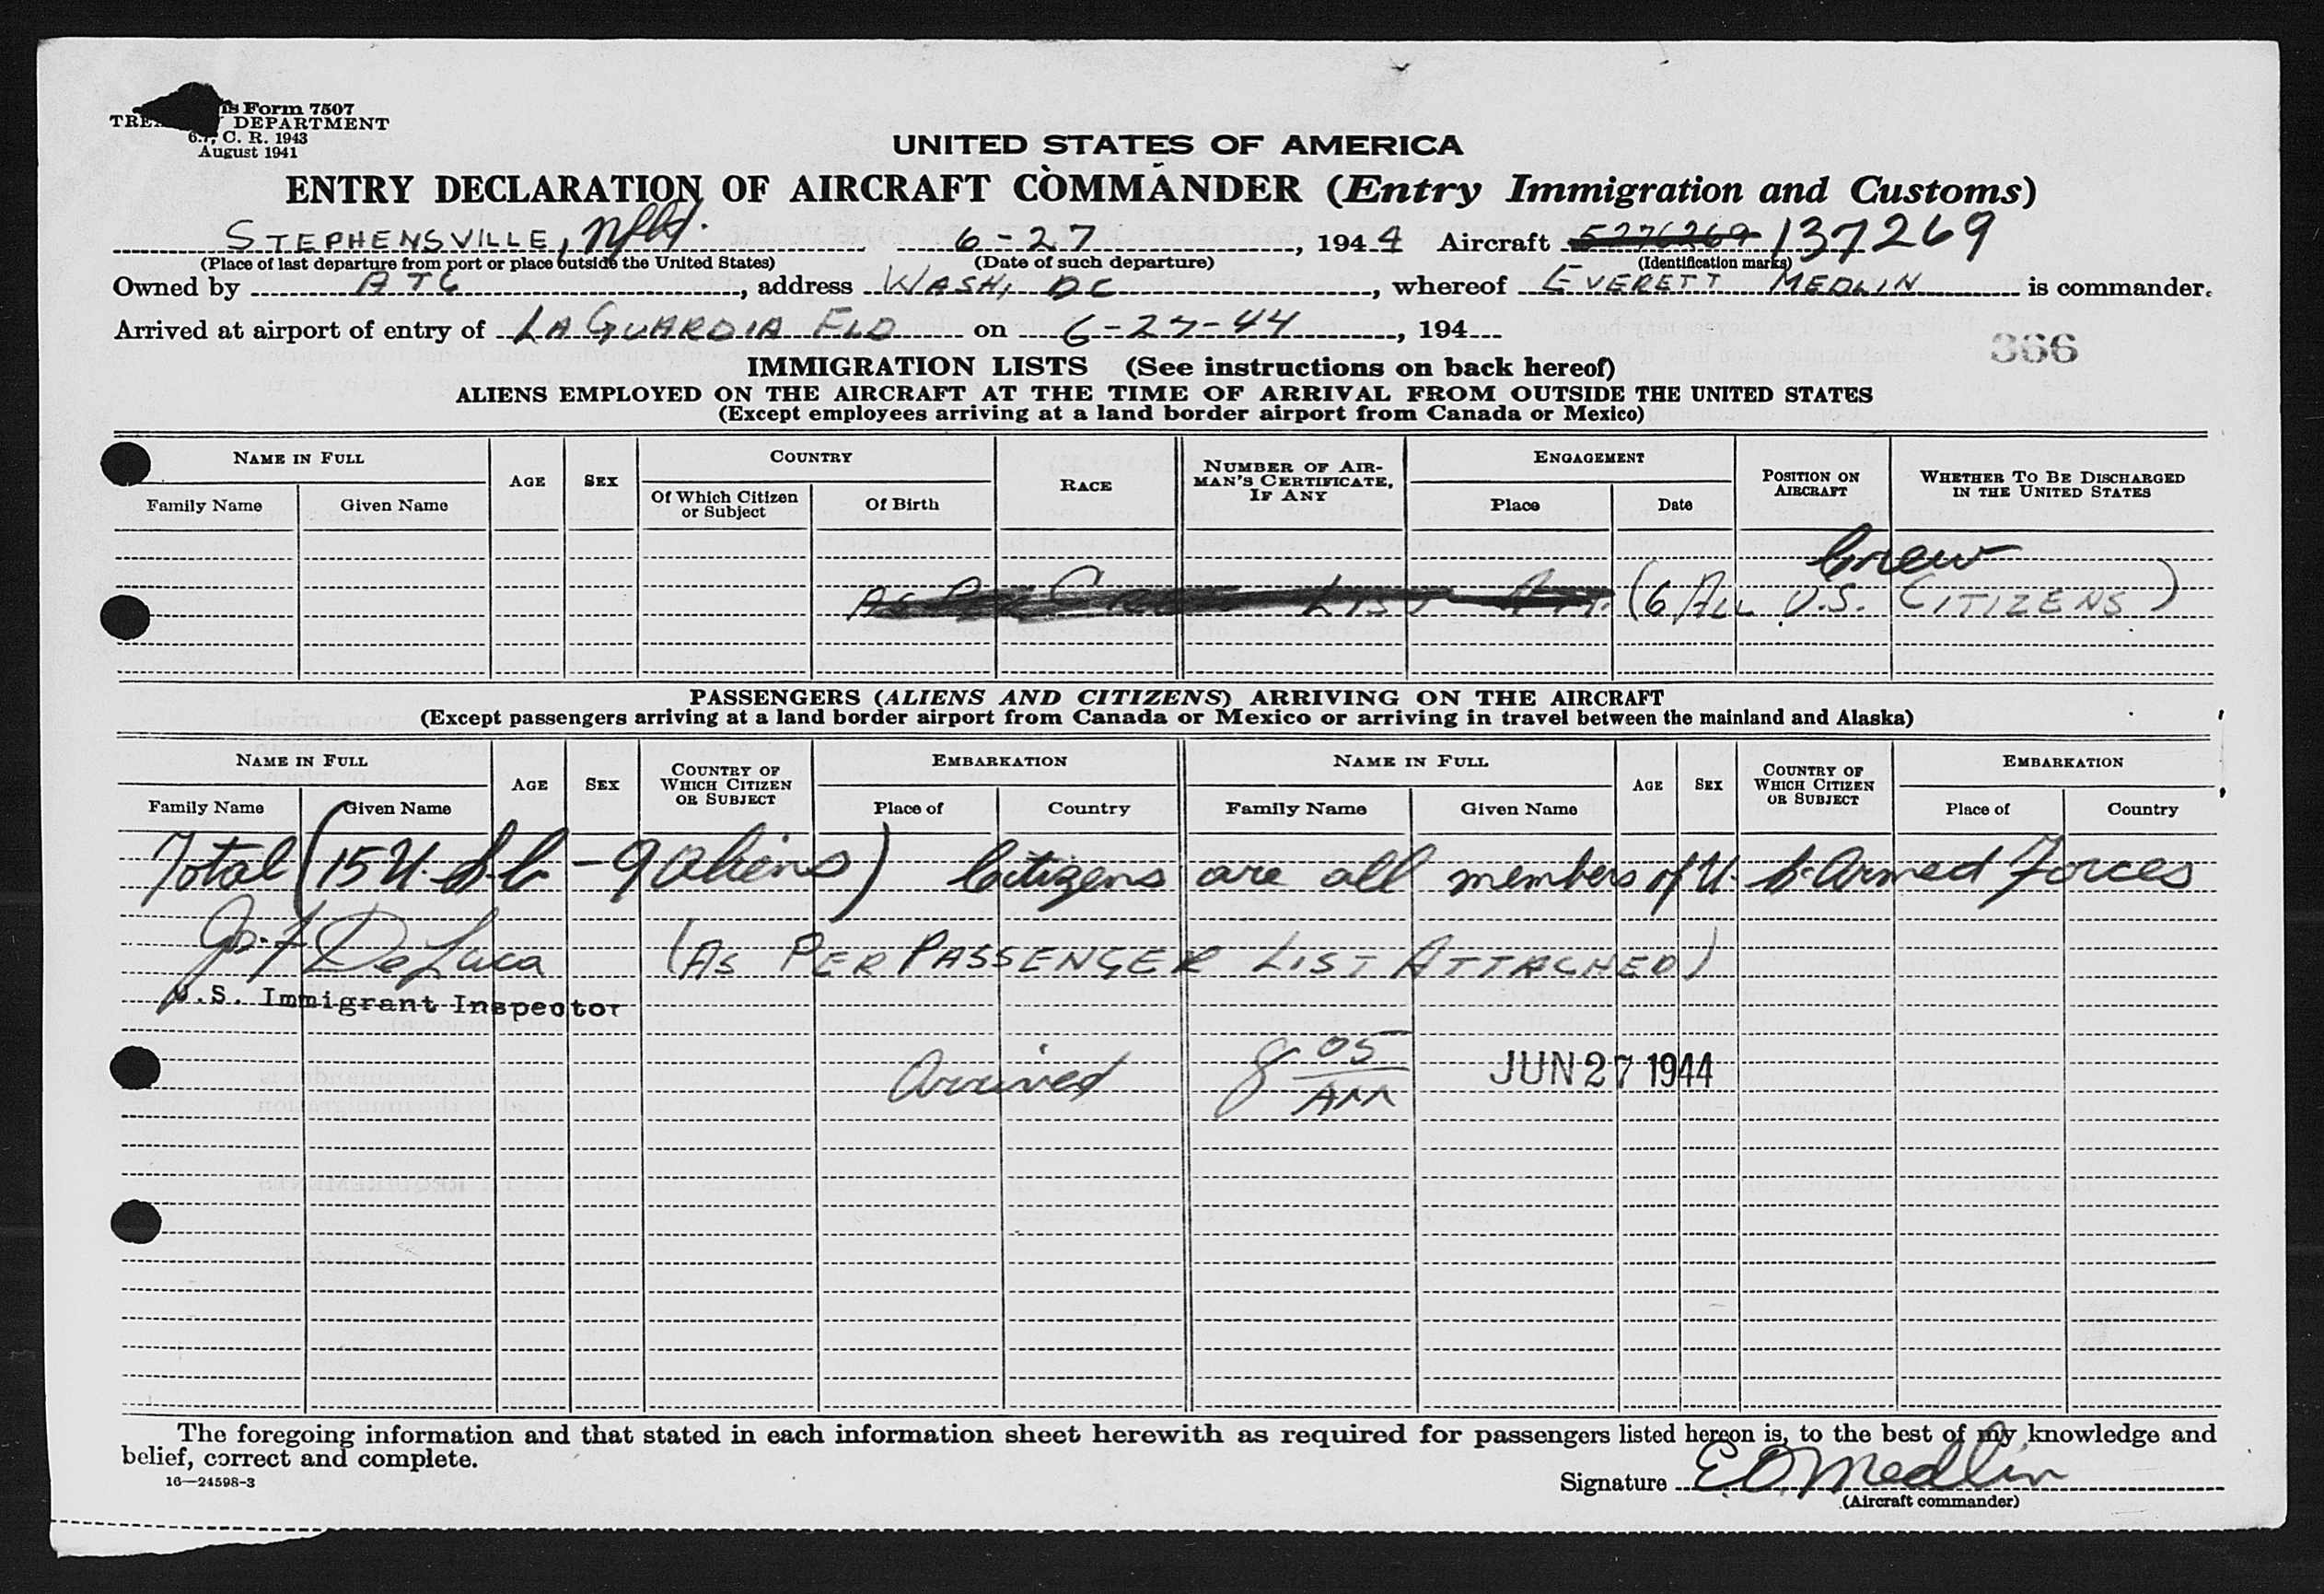 Form 7507
TREASURY DEPARTMENT
C. R. 1943
August 1941
UNITED STATES OF AMERICA
ENTRY DECLARATION OF AIRCRAFT COMMANDER (Entry Immigration and Customs)
STEPHENSVILLE, Nfld. 6-27, 1944 Aircraft 5276269 137269
(Place of last departure from port or place outside the United States) (Date of such departure) (Identification marks)
Owned by ATC, address WASH, DC, whereof EVERETT MEDLIN is commander.
Arrived at airport of entry of LA GUARDIA FLD on 6-27-44, 194
366
IMMIGRATION LISTS (See instructions on back hereof)
ALIENS EMPLOYED ON THE AIRCRAFT AT THE TIME OF ARRIVAL FROM OUTSIDE THE UNITED STATES
(Except employees arriving at a land border airport from Canada or Mexico)
NAME IN FULL AGE SEX COUNTRY RACE NUMBER OF AIRMAN'S CERTIFICATE, IF ANY ENGAGEMENT POSITION ON AIRCRAFT WHETHER TO BE DISCHARGED IN THE UNITED STATES
Family Name Given Name Of Which Citizen or Subject Of Birth Place Date
Crew
AS PER CREW LIST ATT. (6 ALL U.S. CITIZENS)
PASSENGERS (ALIENS AND CITIZENS) ARRIVING ON THE AIRCRAFT
(Except passengers arriving at a land border airport from Canada or Mexico or arriving in travel between the mainland and Alaska)
NAME IN FULL AGE SEX COUNTRY OF WHICH CITIZEN OR SUBJECT EMBARKATION NAME IN FULL AGE SEX COUNTRY OF WHICH CITIZEN OR SUBJECT EMBARKATION
Family Name Given Name Place of Country Family Name Given Name Place of Country
Total (15 U.S.C - 9 Aliens) Citizens are all members of U.S. Armed Forces
Jos. F DeLuca (AS PER PASSENGER LIST ATTACHED)
U.S. Immigrant Inspector
Arrived 8 05 AM JUN 27 1944
The foregoing information and that stated in each information sheet herewith as required for passengers listed hereon is, to the best of my knowledge and
belief, correct and complete.
16—24598-3
Signature E.O. Medlin
(Aircraft commander)